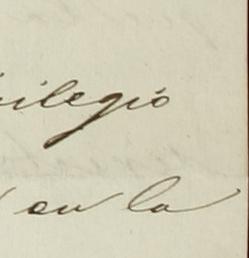 ilegio
en la